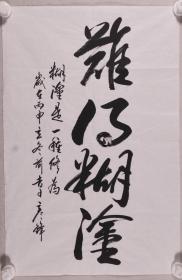 難得糊塗
糊塗是一種修為
歲在丙申立冬前